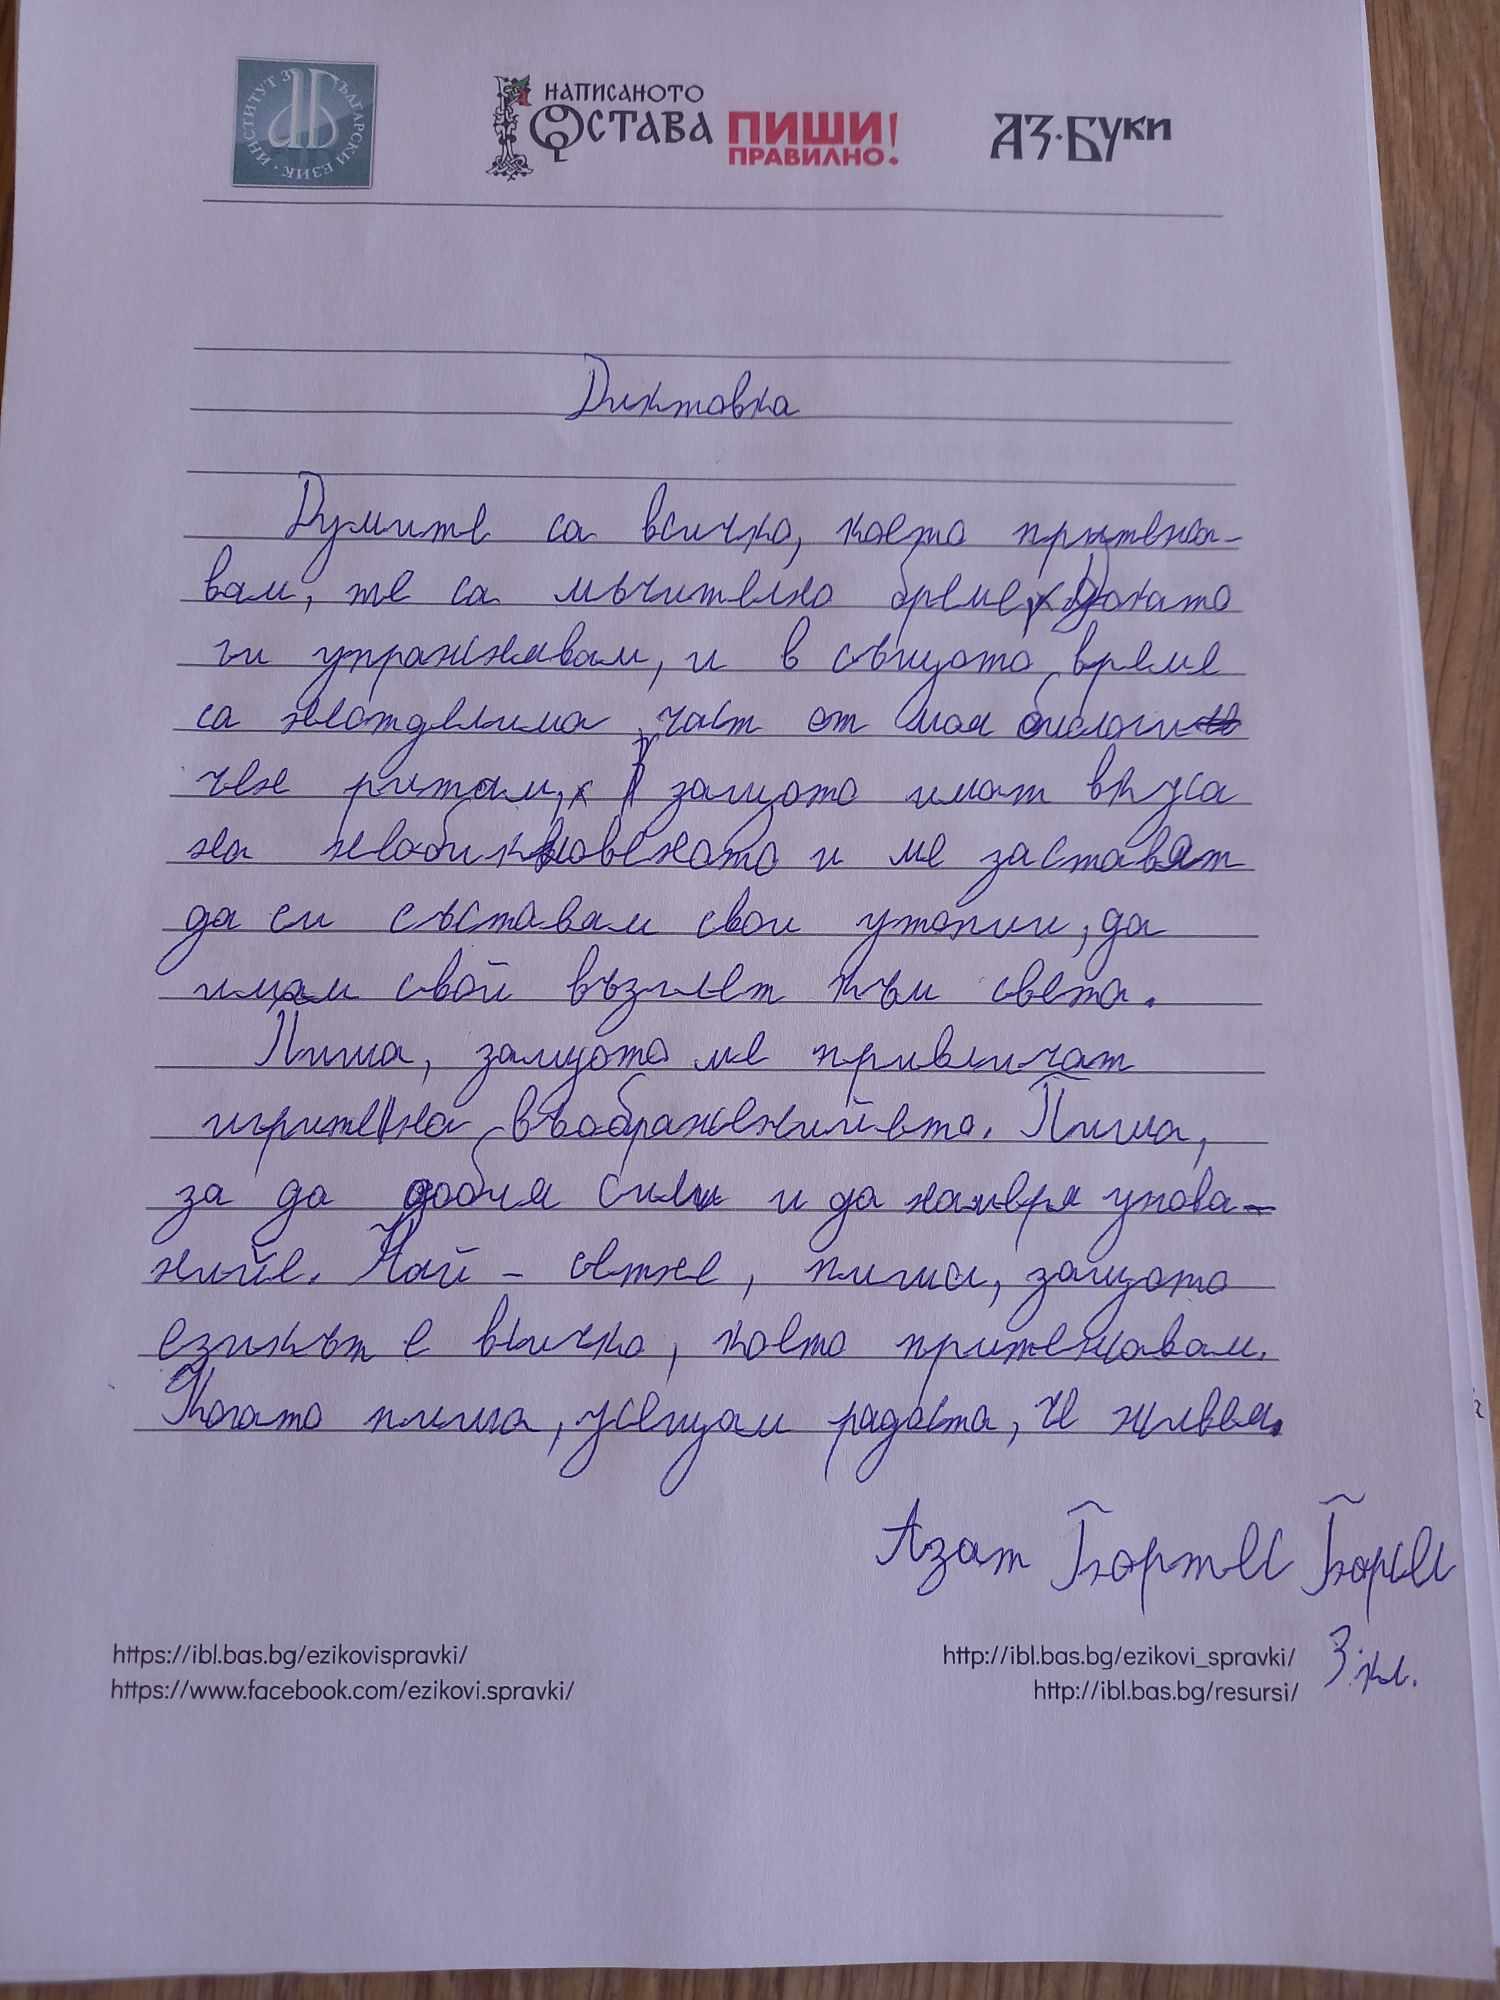 ИНСТИТУТ ЗА БЪЛГАРСКИ ЕЗИК
НАПИСАНОТО ОСТАВА ПИШИ ПРАВИЛНО! АЗ·БУКИ
Диктовка
Думите са всичко, което притежа-
вам, те са мъчително бреме, докато
ги упражнявам, и в същото време
са неотделима част от моя биологи
чен ритъм, защото имат вкуса
на необикновеното и ме заставят
да си съставам свои утопии, да
имам свой възглет към света.
Пиша, защото ме привличат
игрите на въображенийето. Пиша,
за да добия сили и да намеря упова-
нийе. Най - сетне, пиша, защото
езикът е всичко, което притежавам.
Когато пиша, усещам радоста, че живея.
Азат Бортес Борсес
3. кл.
https://ibl.bas.bg/ezikovispravki/ http://ibl.bas.bg/ezikovi_spravki/
https://www.facebook.com/ezikovi.spravki/ http://ibl.bas.bg/resursi/